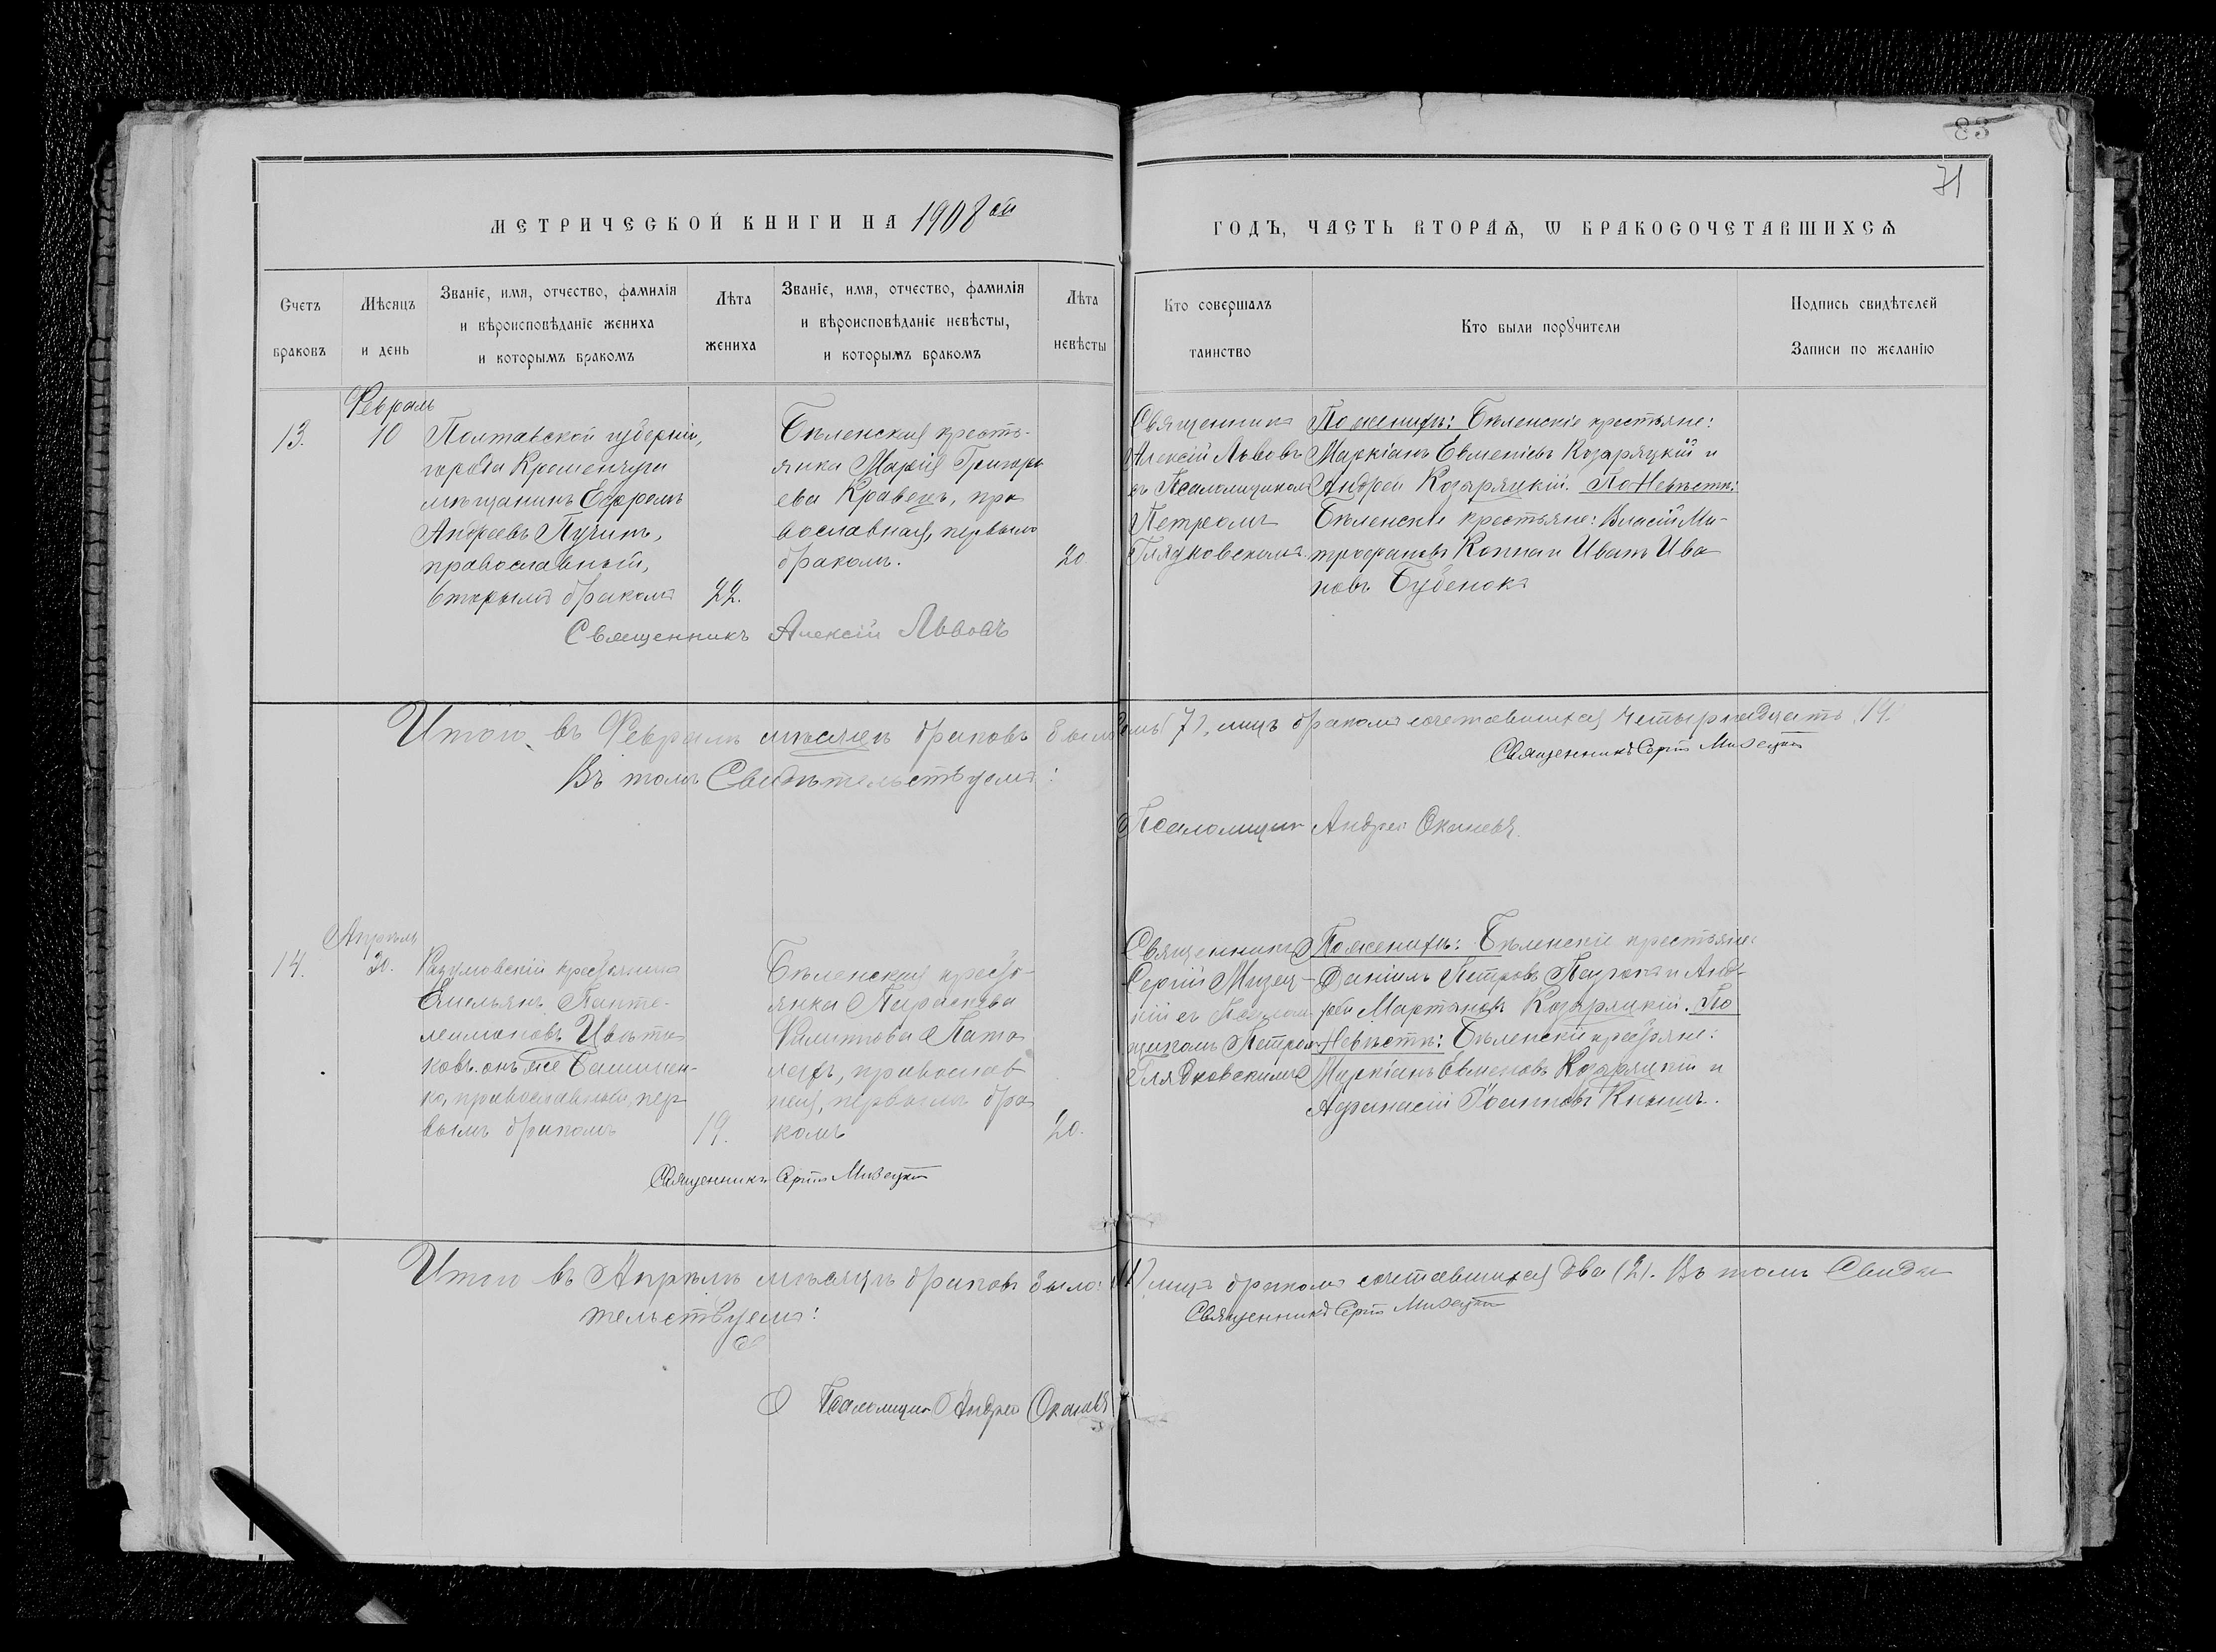 83
71
МЕТРИЧЕСКОЙ КНИГИ НА 1908ой
ГОДЪ, ЧАСТЬ ВТОРАѦ, Ѡ БРАКОСОЧЕТАВШИХСѦ
Счетъ
браковъ
Мѣсяцъ
и день
Званіе, имя, отчество, фамилія
и вѣроисповѣданіе жениха
и которымъ бракомъ
Лѣта
жениха
Званіе, имя, отчество, фамилія
и вѣроисповѣданіе невѣсты,
и которымъ бракомъ
Лѣта
невѣсты
Кто совершалъ
таинство
Кто были порꙋчители
Подпись свидѣтелей
Записи по желанію
Февраль
13.
10
Полтавской губерніи,
города Кременчуга
мѣщанинъ Ефремъ
Андреевъ
православный,
вторымъ бракомъ
22.
Бѣленская кресть-
янка Марія Григорь
ева Кравецъ, пра
вославная, первымъ
бракомъ.
20
Священникъ
Алексій Львовъ
съ Псаломщикомъ
Петромъ
Глядковскимъ
По женихѣ: Бѣленскіе крестьяне:
Маркіанъ Евменіевъ Козаряцкій и
Андрей Козаряцкій. По Невѣстѣ:
Бѣленскіе крестьяне: Власій Ми-
трофановъ Коппа и Иванъ Ива
новъ Бубенокъ
Священникъ Алексій Львовъ
Итого въ Февралѣ мѣсяцѣ браковъ было семь (7), лицъ бракомъ сочетавшихся четырнадцать 14.
Священникъ Сергій Мизецкій
Въ томъ Свидѣтельствуемъ:
Псаломщикъ Андрей
Апрѣль
14.
20.
Разумовскій крестьянинъ
Емельянъ Панте-
леимоновъ Цвѣт
ковъ онъ же
ко, православный, пер
вымъ бракомъ
19.
Бѣленская кресть-
янка Параскева
Филиппова
православ
ная, первымъ бра
комъ
20.
Священникъ
Сергій Мизец-
кій съ Псалом
щикомъ Петромъ
Глядковскимъ
По женихѣ: Бѣленскіе крестьяне:
Даніилъ Петровъ и Анд-
рей Мартиновъ Козаряцкій. По
Невѣстѣ: Бѣленскіе крестьяне:
Маркіанъ Евменовъ Козаряцкій и
Афанасій Іоанновъ Кнышъ.
Священникъ Сергій Мизецкій
Итого въ Апрѣлѣ мѣсяцѣ браковъ было (1) лицъ бракомъ сочетавшихся два (2). Въ томъ Свидѣ
тельствуемъ:
Священникъ Сергій Мизецкій
Псаломщикъ Андрей